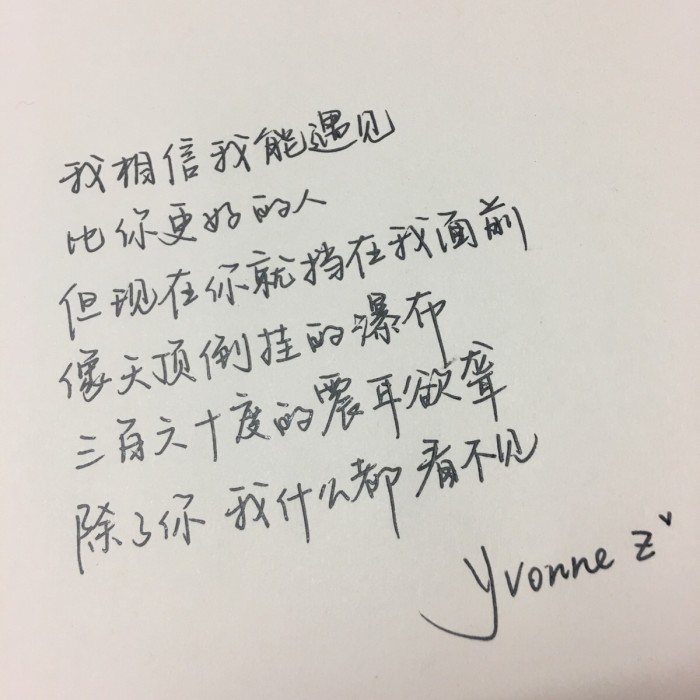 我相信我能遇见
比你更好的人
但现在你就挡在我面前
像天顶倒挂的瀑布
三百六十度的震耳欲聋
除了你 我什么都看不见
Yvonne Z